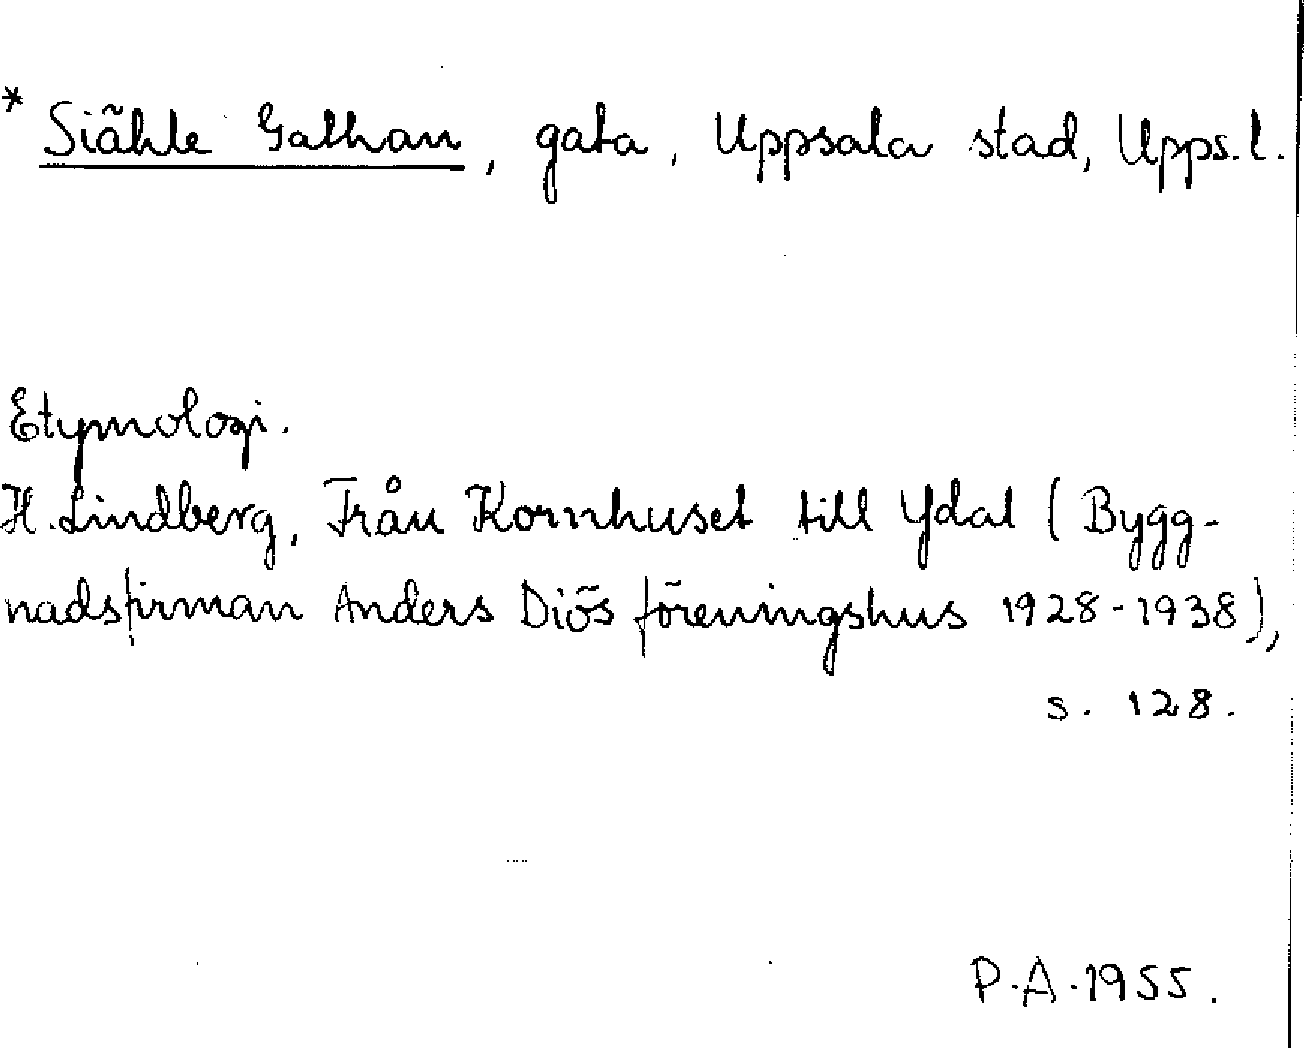 * Siähle Gathan, gata, Uppsala stad, Upps.l.
Etymologi.
H. Lindberg, Från Kornhuset till Ydal (Bygg-
nadsfirman Anders Diös föreningshus 1928-1938),
s. 128.
P.A. 1955.